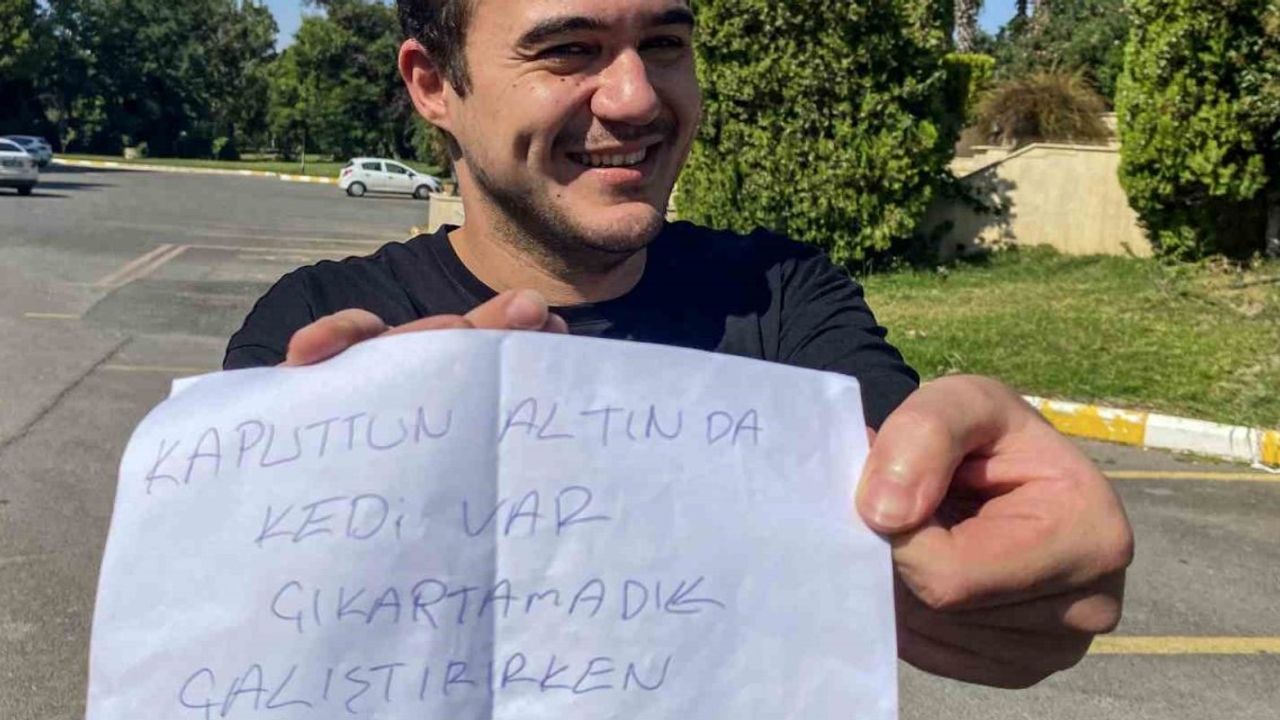 KAPUTTUN ALTINDA
KEDİ VAR
ÇIKARTAMADIK
ÇALIŞTIRIRKEN